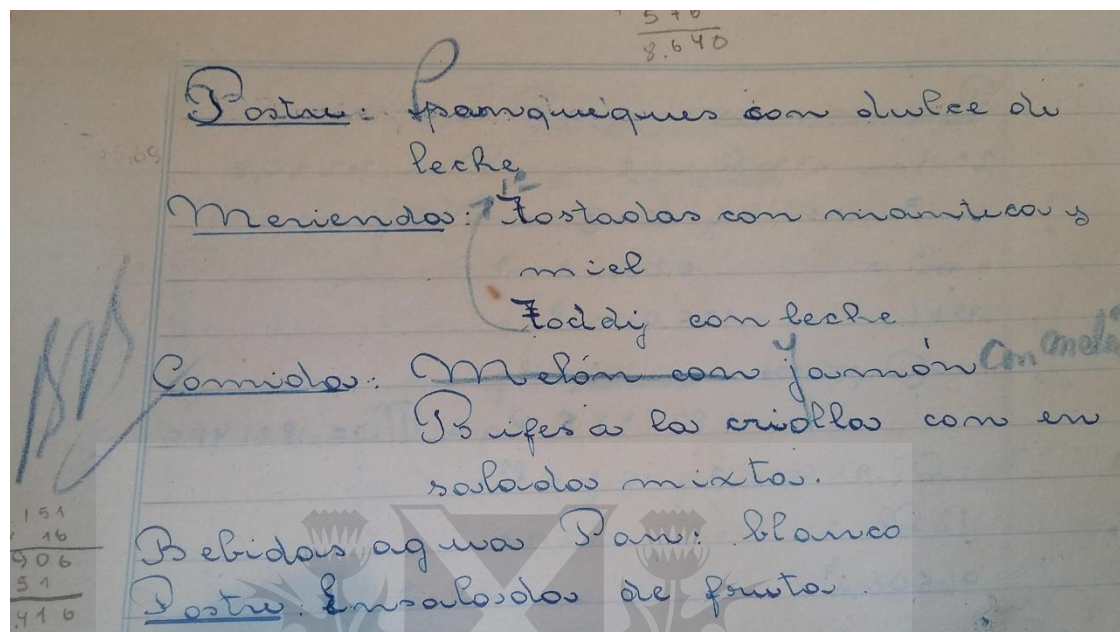 576
8.640
Postre: panqueques con dulce de
leche
Merienda: 1º Tostadas con manteca y
miel
Toddy con leche
Comida: Melón con jamón con meló
Bifes a la criolla con en
salada mixta.
Bebidas agua Pan: blanco
Postre: Ensalada de fruta.
151
16
906
51
416